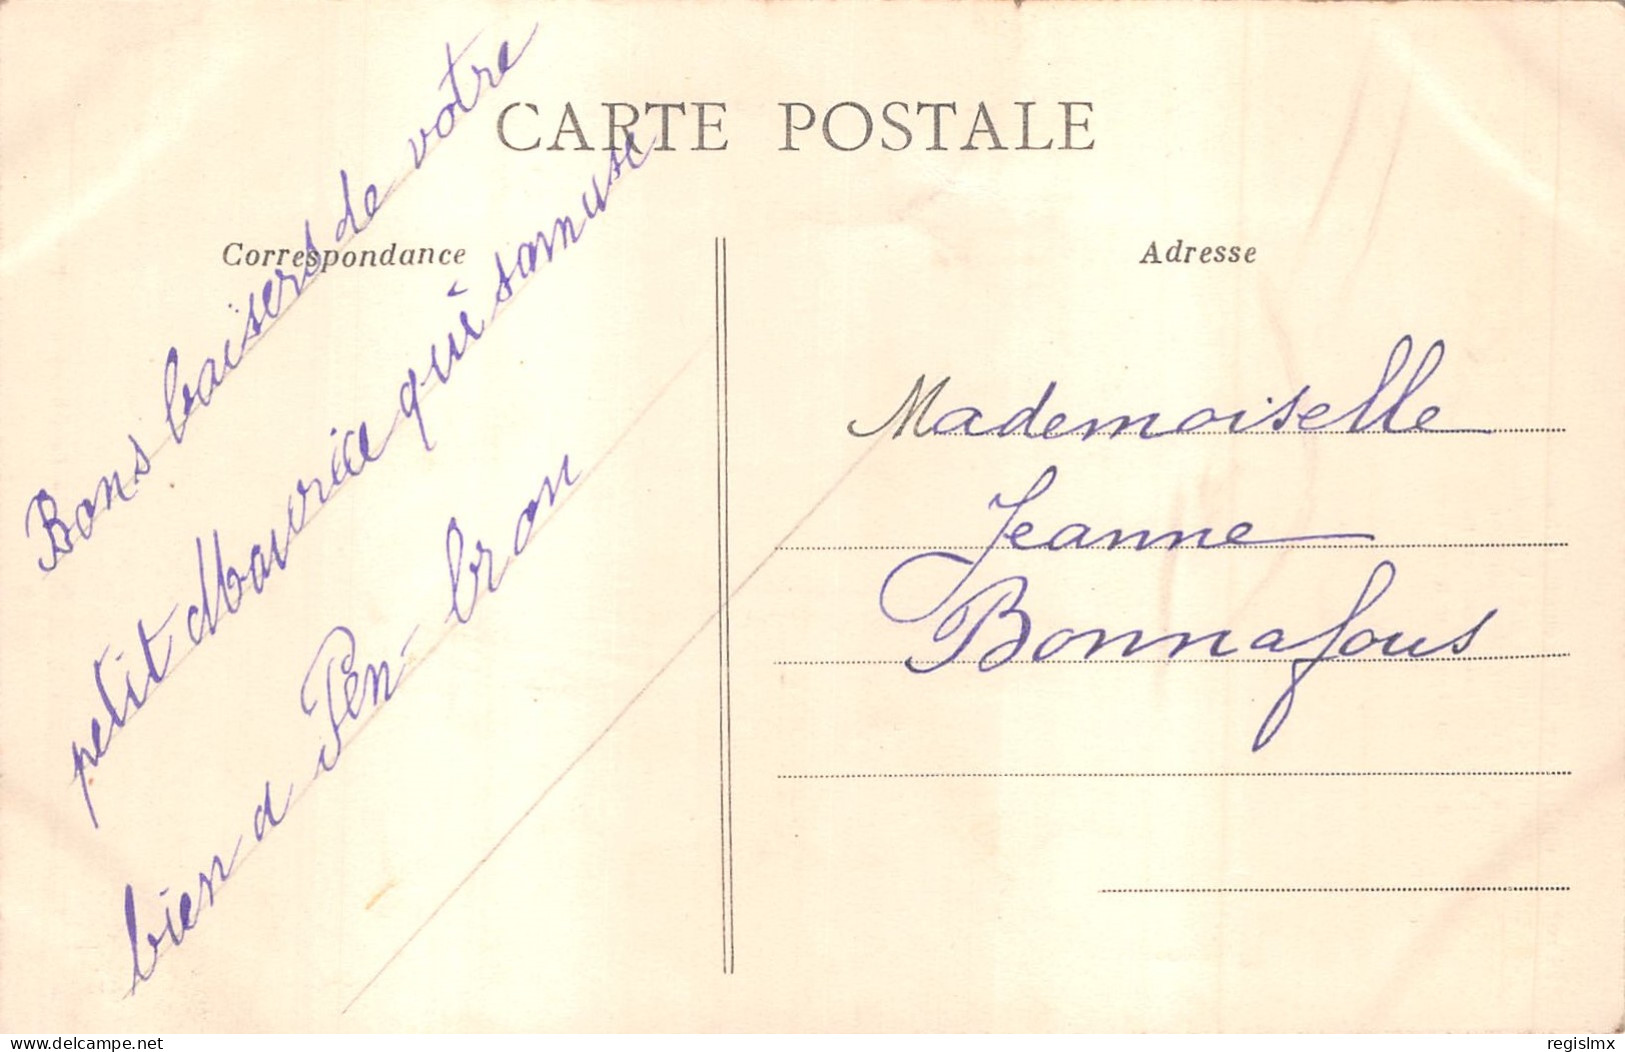 CARTE POSTALE
Correspondance
Bons baisers de votre
petit Maurice qui samuse
bien a Pen-bron
Adresse
Mademoiselle
Jeanne
Bonnafous
www.delcampe.net
regislmx